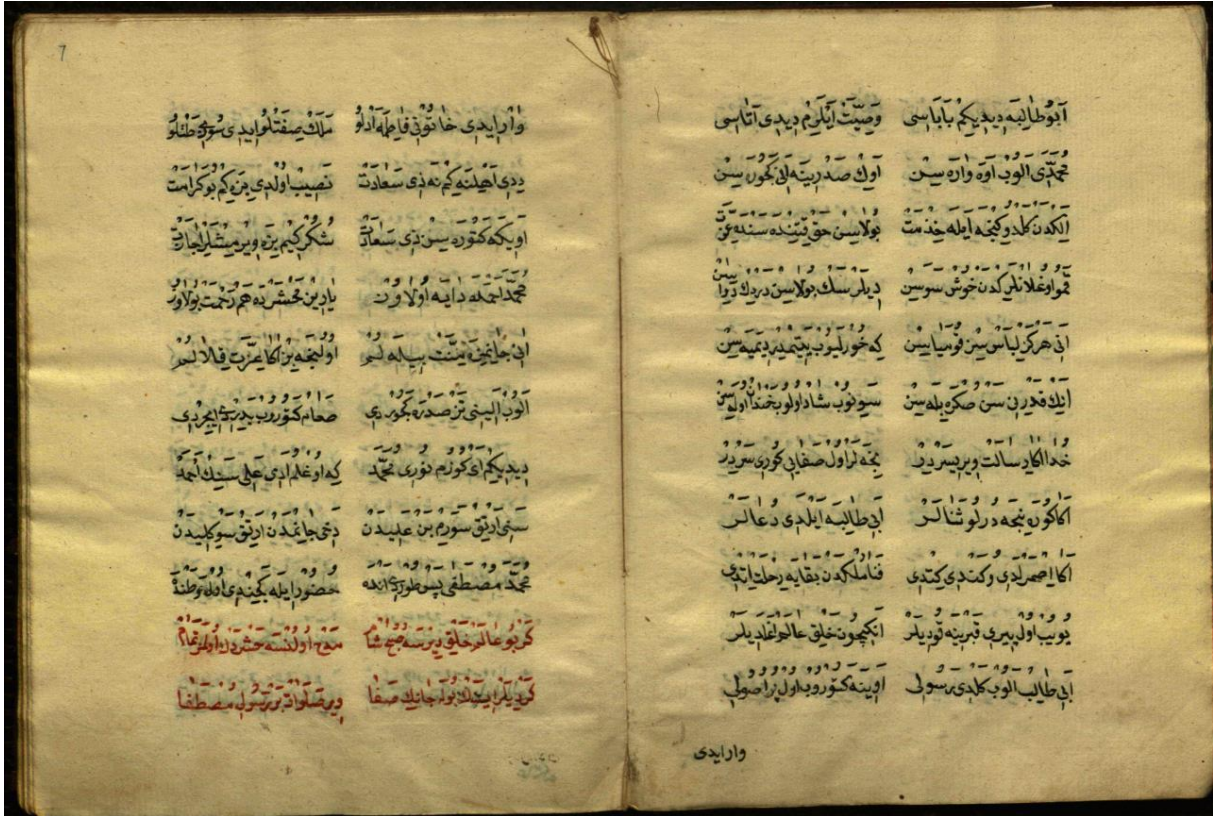 اَبُو طَالِبَه دِيدِيكِمْ بَابَاسِى وَصِيَّتْ اَيْلَرِمْ دِيدِى آتَاسِى
مُحَمَّدِى اَلُوبْ اَوَه وَارَه سِنْ اَوِكْ صَدْرِينَه اَنِى كَچُورَه سِنْ
اَلِكْدَن كَلْدُوكِنْجَه اَيْلَه خِذْمَتْ بُولَاسِنْ حَقْ قَتِنْدَه سَنْدَه عِزَّتْ
قَمُو اوغْلَانْلَرِكْدَن خُوشْ سَوَسِنْ دِيلَرْسَكْ بُولَاسِنْ دَرْدِكْ دَوَا
اَنِى هَرْكِزْ لِبَاسْسِزْ قُومَيَاسِنْ كه خُورلَيُوبْ يَتِيمْدِرْ دِيمَيَه سِنْ
اَنِكْ قَدْرِنِى سَنْ صُكْرَه بِلَه سِنْ سَوِنُوبْ شَادْ اولُوبْ خَنْدَانْ اولَه سِنْ
خُدَا اكَا رِسَالَتْ وِيرِيسَرْدِرْ نِجَه لَرْ اولْ صَفَايِى كُورِيسَرْدِرْ
اكَا كُورَه نِجَه دُرْلُو ثَنَالَرْ اَبِى طَالِبَه اَيْلَدِى دُعَالَرْ
اكَا اِصْمَرْلَدِى وَكَنْدِى كِتْدِى فَنَا مُلْكِنْدَن بَقَايَه رِحْلَتْ اِتْدِى
يُويُبْ اولْ پِيرِى قَبْرِينَه قُودِيلَرْ اَنِكِيچُونْ خَلْقِ عَالَمْ اَغْلَدِيلَرْ
اَبِى طَالِبْ اَلُوبْ كَلْدِى رَسُولِى اَوِينَه كَتُورُوبْ اولْ اُصُولِى
وار ايدى
وَارْ ايدِى خَاتُونِى فَاطِمَه آدْلُو مَلَكْ صِفَتْلُو ايدِى سُوزِى طَتْلُو
دِدِى اَهْلِنَه كِمْ نَه ذِى سَعَادَتْ نَصِيبْ اولْدِى بِزَه كِمْ بُو كَرَامَتْ
اَوِيكَه كَتُورَه سِنْ ذِى سَعَادَتْ شُكُرْ كِيمْ بِزَه وِيرْمِشْلَرْ اِجَازَتْ
مُحَمَّدْ اَحْمَدَه دَايَه اولَاوُزْ يَارِينْ مَحْشَرْدَه هَمْ رَحْمَتْ بُولَاوُزْ
اَنِى جَانِمِزَه مِنَّتْ بِيلَه لُمْ اولِنْجَه بِزْ اكَا عِزَّتْ قِلَالُمْ
اَلُوبْ اَلِينِى تِزْ صَدْرَه كَچُورْدِى طَعَامْ كَتُورُوبْ يِدِرْدِى اِيچِرْدِى
دِيدِيكِمْ اَىْ كُوزُمْ نُورِى مُحَمَّدْ كه اوغْلُمْ آدِى عَلِى سَنِكْ اَحْمَدْ
سَنِى اَرْتِقْ سَوَرَمْ بَنْ عَلِيدَنْ دَخِى جَانُمْدَنْ اَرْتِقْ سَوْكُلِيدَنْ
مُحَمَّدْ مُصْطَفَى پَسْ طُورْدِى اَنْدَه حُضُورْ اِيلَه كَچِنْدِى اولْ وَطَنْدَه
كَرْ بُو عَالَمْ خَلْقِى دِيرْسَه صُبْحْ شَامْ مَدْحْ اولُنْسَه حَشْرَدَكْ اولْمَزْ تَمَامْ
كَرْ دِيلَرْسِكْ بُولَه جَانِكْ صَفَا وِيرْ صَلَوَاتْ بَرْ رَسُولِ مُصْطَفَا